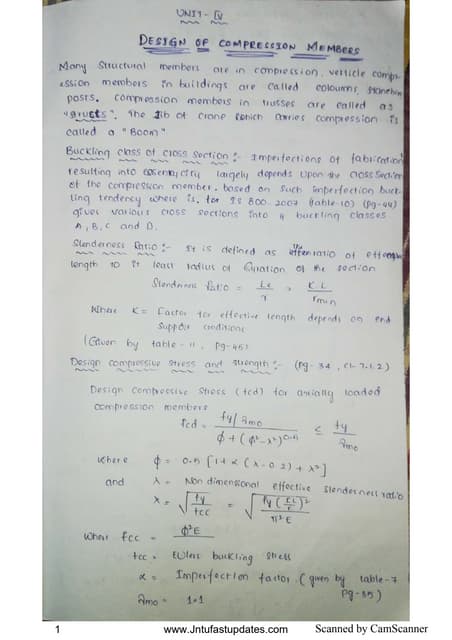 UNIT - IV
DESIGN OF COMPRESSION MEMBERS
Many Structural members are in compression, verticle compr-
ession members in buildings are called coloumns,
posts. compression members in trusses are called as
"struts". The Jib of crane which carries compression is
called a "Boom"
Buckling class of cross section :- Imperfections of fabrication
resulting into largely depends upon the cross section
of the compression member. based on such imperfection buck-
ling tendency where is. for IS 800-2007 (table-10) (pg-44)
gives various cross sections into 4 buckling classes
A, B, C and D.
Slenderness Ratio :- It is defined as the ratio of effective
length to it least radius of Gyration of the section
Slenderness Ratio = Le/r = KL/rmin
Where K = Factor for effective length depends on end
Support conditions
(Given by table - 11, Pg-45)
Design compressive stress and strength :- (Pg-34, cl-7.1.2)
Design Compressive Stress (fcd) for axially loaded
compression members
fcd = fy/λmo / ϕ + (ϕ² - λ²)^0.5 ≤ fy/λmo
where ϕ = 0.5 [1 + α (λ - 0.2) + λ²]
and λ = Non dimensional effective slenderness ratio
λ = √(fy/fcc) = √(fy (KL/r)² / π²E)
Where fcc = π²E
fcc = Eulers buckling stress
α = Imperfection factor. (given by table-7
Pg-35)
λmo = 1.1
1
www.Jntufastupdates.com
Scanned by CamScanner